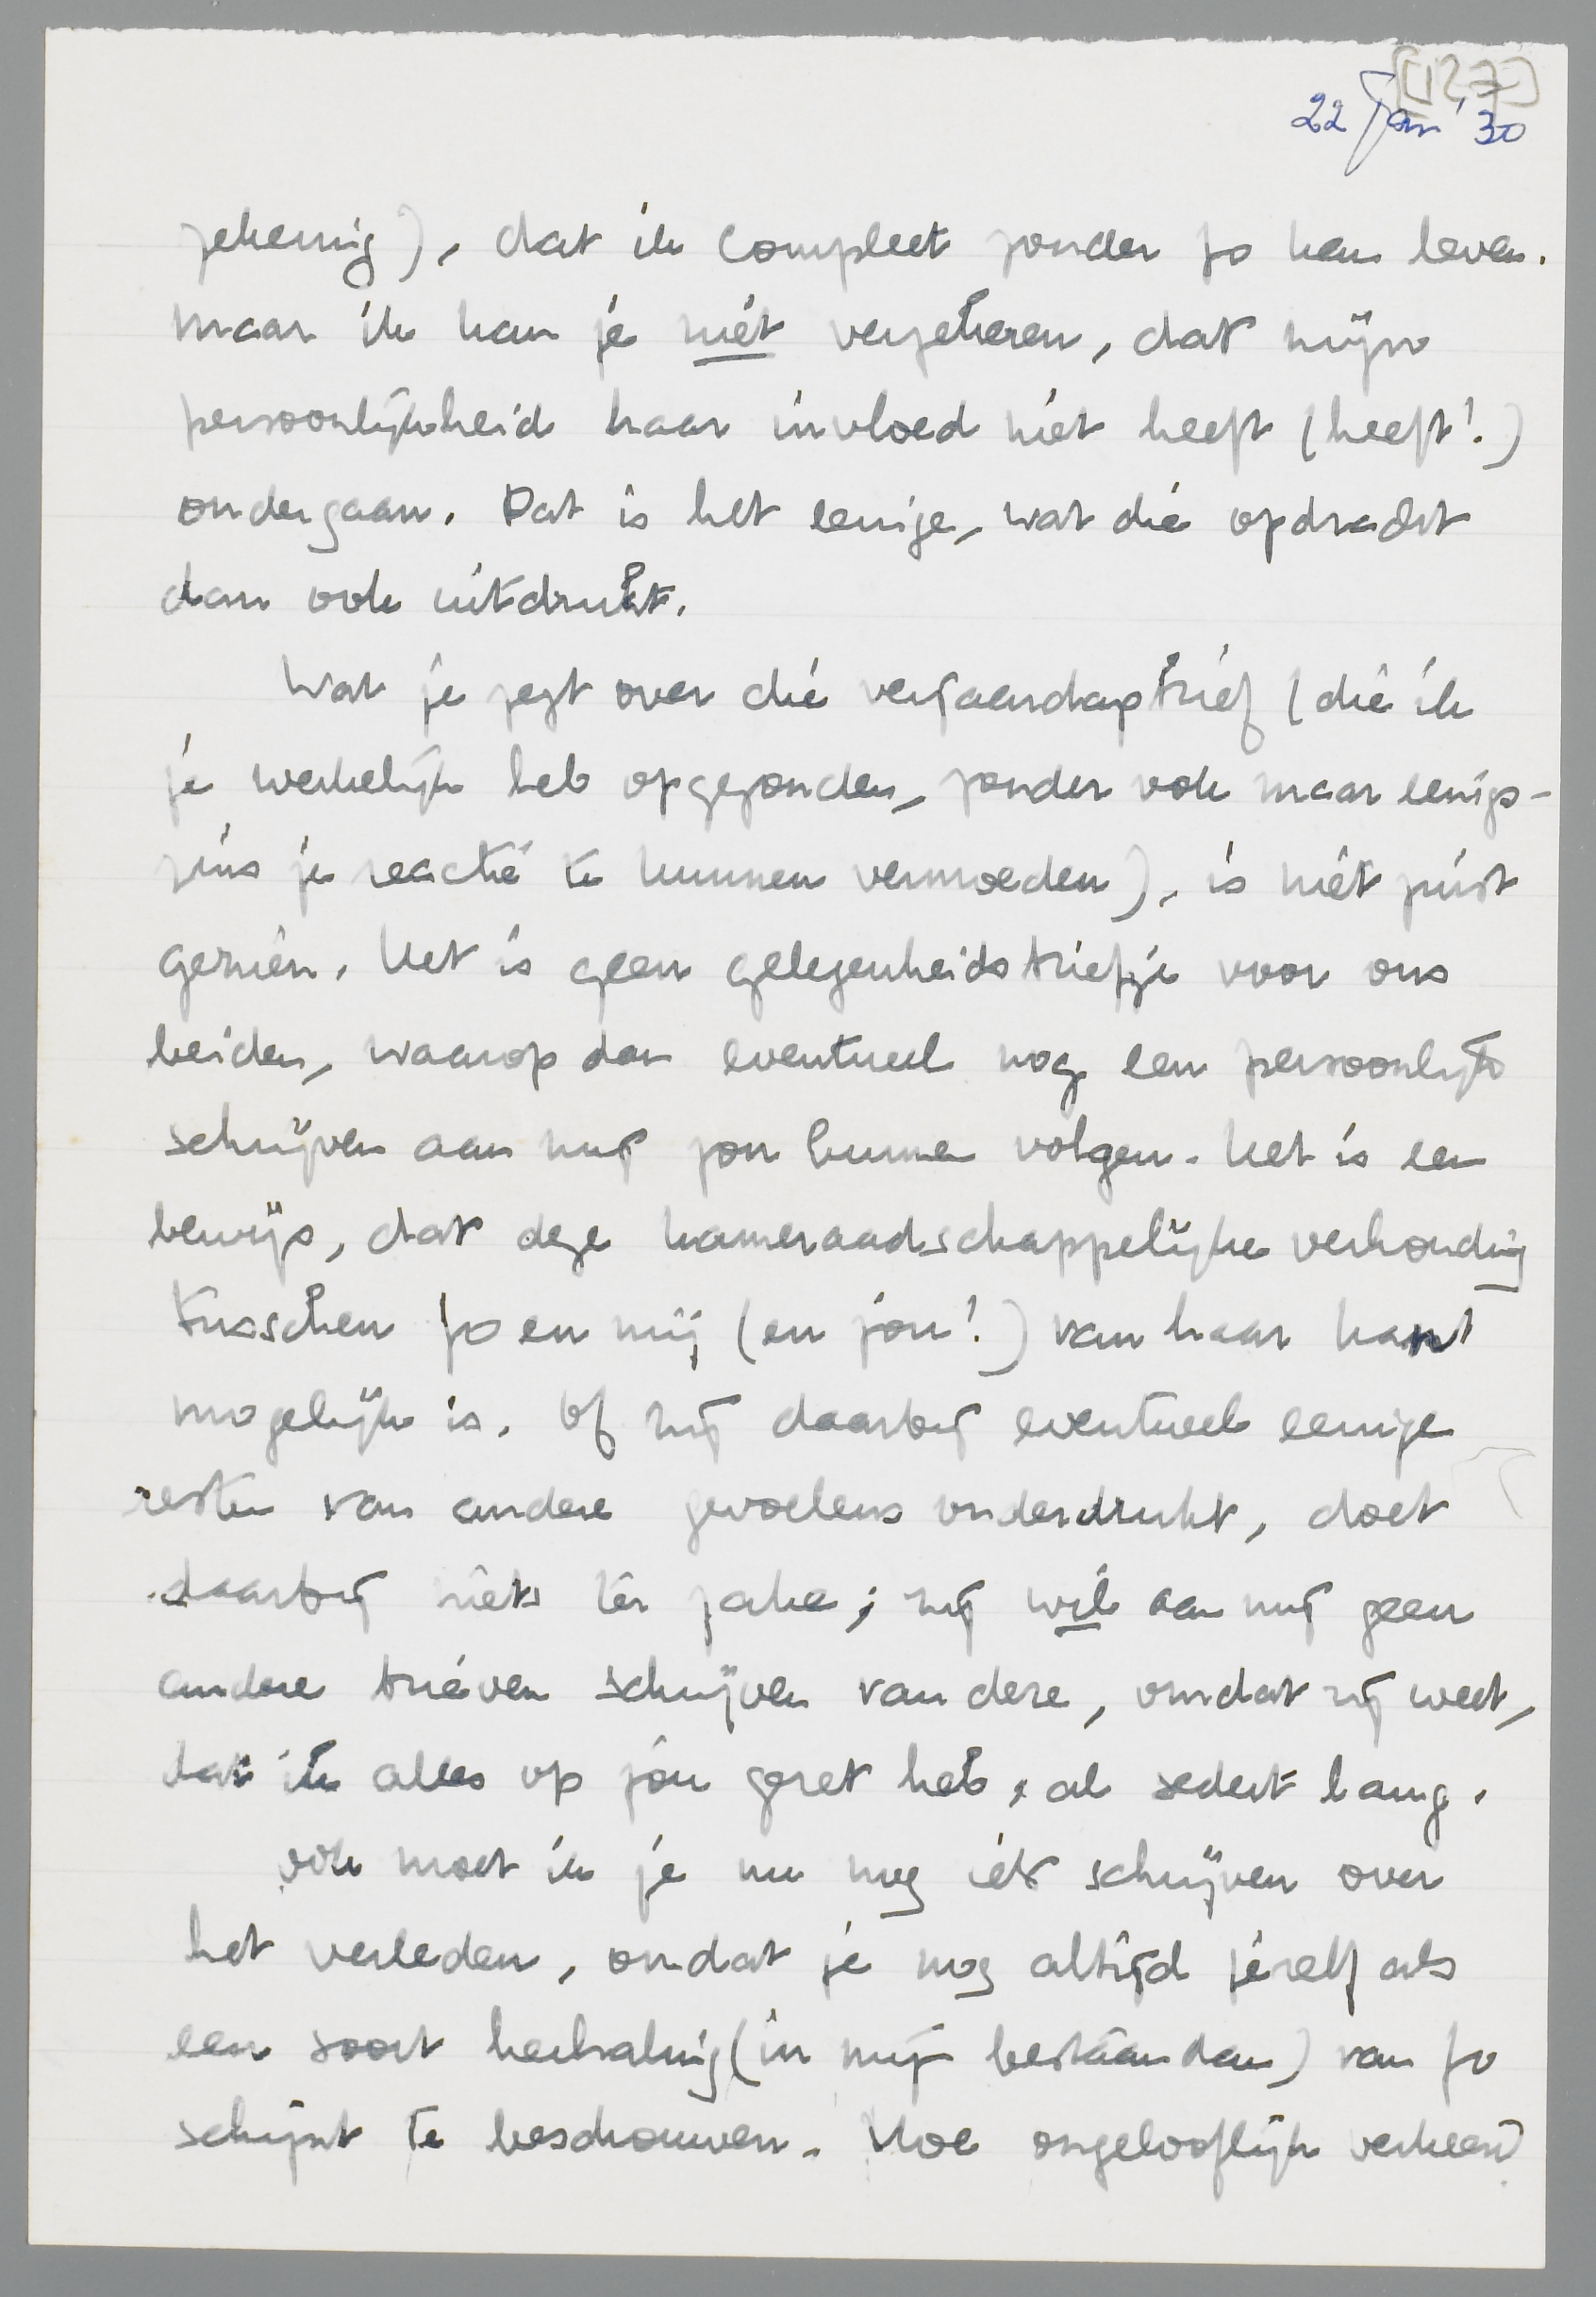 [127]
22 Jan '30
zekering), dat ik compleet zonder Jo kan leven.
maar ik kan je niet verzekeren, dat mijn
persoonlijkheid haar invloed niet heeft (heeft!)
ondergaan. Dat is het eenige, wat die opdracht
dan ook uitdrukt.
Wat je zegt over die verjaardagbrief (die ik
je werkelijk heb opgezonden, zonder ook maar eenigs-
zins je reactie te kunnen vermoeden), is niet juist
gezien. Het is geen gelegenheidsbriefje voor ons
beiden, waarop dan eventueel nog een persoonlijk
schrijven aan mij zou kunnen volgen. Het is een
bewijs, dat deze kameraadschappelijke verhouding
tusschen Jo en mij (en jou!) van haar kant
mogelijk is. Of zij daarbij eventueel eenige
resten van andere gevoelens onderdrukt, doet
daarbij niets ter zake; zij wil aan mij geen
andere brieven schrijven dan deze, omdat zij weet,
dat ik alles op jou gezet heb, al sedert lang.
Ook moet ik je nu nog iets schrijven over
het verleden, omdat je nog altijd jezelf als
een soort herhaling (in mijn bestaan dan) van Jo
schijnt te beschouwen. Hoe ongelooflijk verkeerd